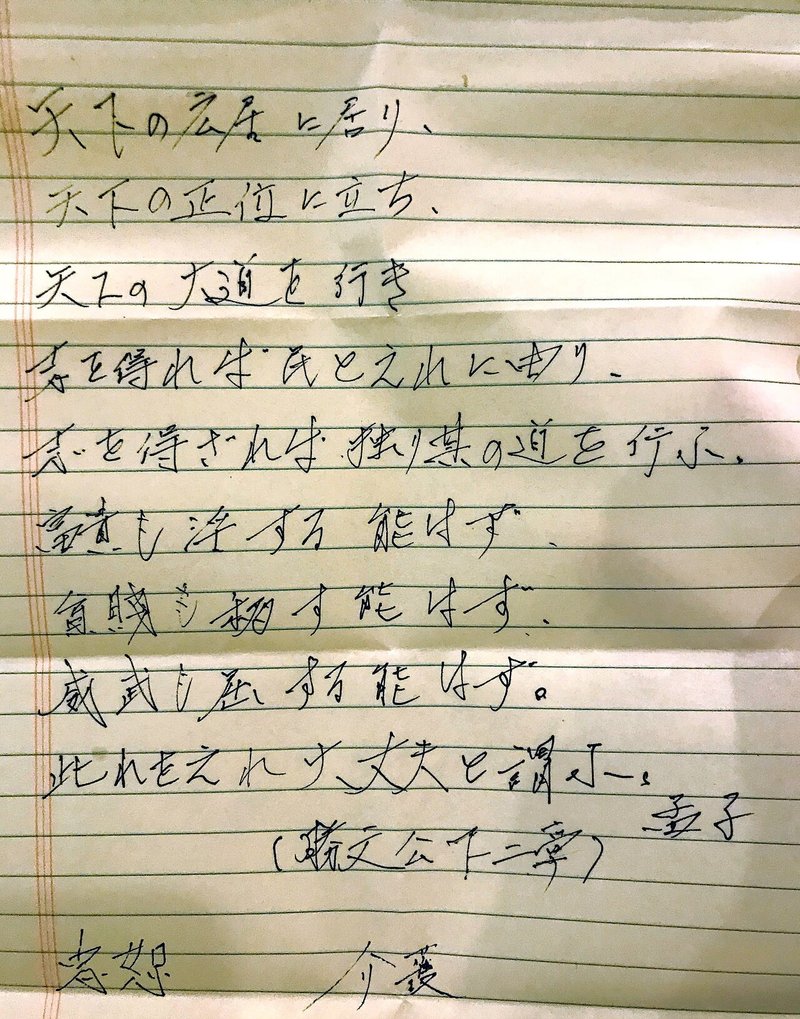 天下の広居に居り、
天下の正位に立ち、
天下の大道を行き
志を得れば民と之れに由り、
志を得ざれば独り其の道を行ふ、
富貴も淫する能はず、
貧賤も移す能はず、
威武も屈する能はず。
此れを之れ大丈夫と謂ふ。
孟子
(滕文公下二章)
忠恕 介護